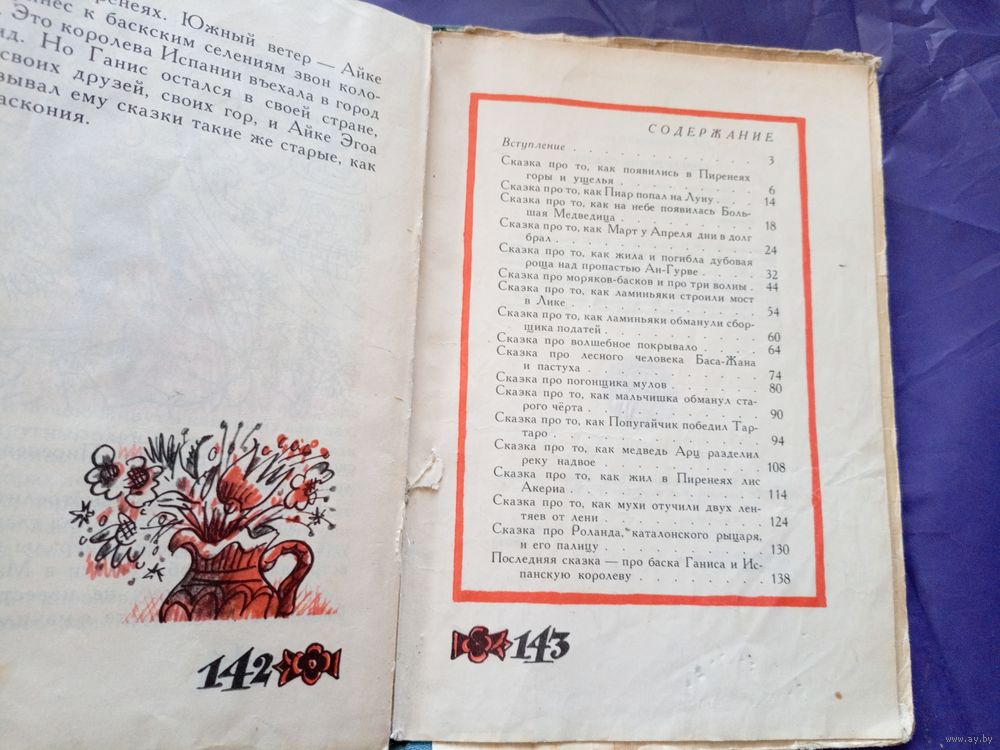 Южный ветер — Айке
к баскским селениям звон коло-
Это королева Испании въехала в город
Но Ганис остался в своей стране,
своих друзей, своих гор, и Айке Эгоа
ему сказки такие же старые, как
142
СОДЕРЖАНИЕ
Вступление . . . . . . . . . . . 3
Сказка про то, как появились в Пиренеях
горы и ущелья . . . . . . . . 6
Сказка про то, как Пиар попал на Луну . . 14
Сказка про то, как на небе появилась Боль-
шая Медведица . . . . . . . . 18
Сказка про то, как Март у Апреля дни в долг
брал . . . . . . . . . . . 24
Сказка про то, как жила и погибла дубовая
роща над пропастью Ан-Гурве . . . . 32
Сказка про моряков-басков и про три волны . 44
Сказка про то, как ламиньяки строили мост
в Лике . . . . . . . . . . 54
Сказка про то, как ламиньяки обманули сбор-
щика податей . . . . . . . . 60
Сказка про волшебное покрывало . . . . 64
Сказка про лесного человека Баса-Жана
и пастуха . . . . . . . . . 74
Сказка про погонщика мулов . . . . . 80
Сказка про то, как мальчишка обманул ста-
рого чёрта . . . . . . . . . 90
Сказка про то, как Попугайчик победил Тар-
таро . . . . . . . . . . . 94
Сказка про то, как медведь Арц разделил
реку надвое . . . . . . . . . 108
Сказка про то, как жил в Пиренеях лис
Акериа . . . . . . . . . . 114
Сказка про то, как мухи отучили двух лен-
тяев от лени . . . . . . . . . 124
Сказка про Роланда, каталонского рыцаря,
и его палицу . . . . . . . . . 130
Последняя сказка — про баска Ганиса и Ис-
панскую королеву . . . . . . . 138
143
www.ay.by